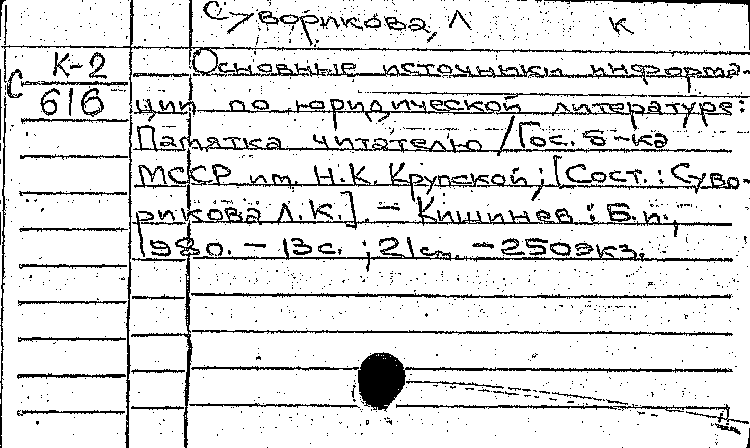 Суворикова, Л К
К-2
С
616
Основные источники информа-
ции по юридической литературе:
Памятка читателю / Гос. б-ка
МССР им. Н.К. Крупской; [Сост.: Суво-
рикова Л.К.]. – Кишинев: Б.и.,
1980. – 13с.; 21см. – 250экз.